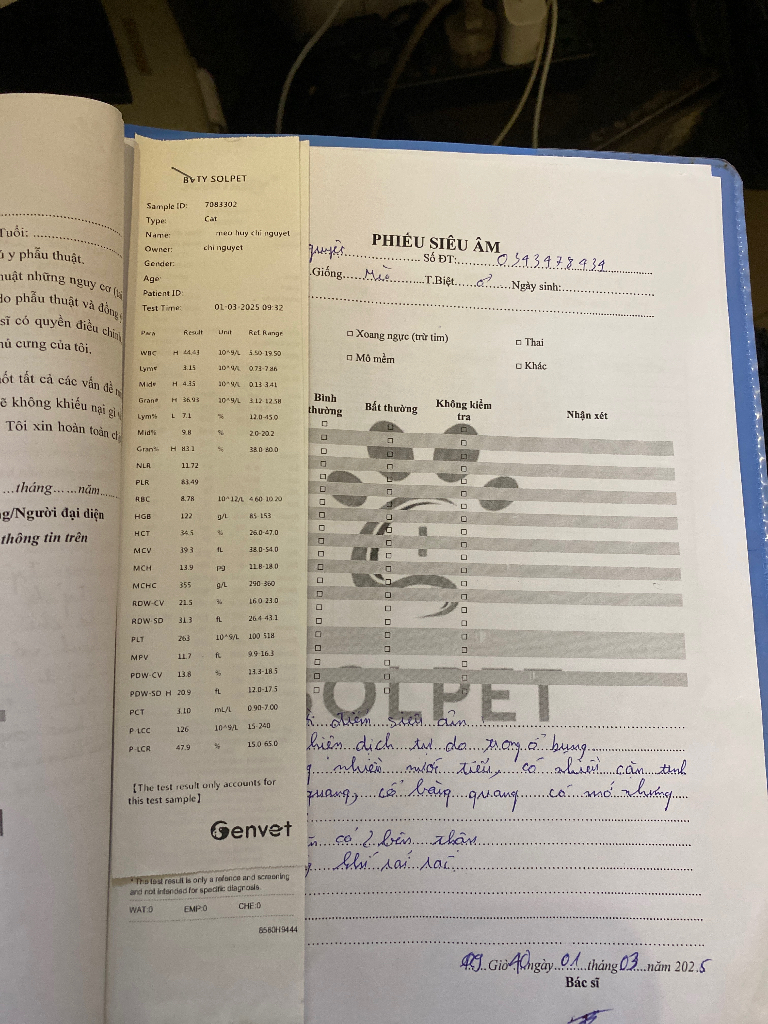 Tuổi: ..................
ủ y phẫu thuật.
huật những nguy cơ
do phẫu thuật và đồng
sĩ có quyền điều chỉnh
hú cưng của tôi.
ốt tất cả các vấn đề
ẽ không khiếu nại gì
Tôi xin hoàn toàn
...tháng......năm....
g/Người đại diện
thông tin trên
BVTY SOLPET
Sample ID: 7083302
Type: Cat
Name: meo huy chi nguyet
Owner: chi nguyet
Gender:
Age:
Patient ID:
Test Time: 01-03-2025 09:32
Para Result Unit Ref. Range
WBC H 44.43 10^9/L 5.50-19.50
Lym# 3.15 10^9/L 0.73-7.86
Mid# H 4.35 10^9/L 0.13-3.41
Gran# H 36.93 10^9/L 3.12-12.58
Lym% L 7.1 % 12.0-45.0
Mid% 9.8 % 2.0-20.2
Gran% H 83.1 % 38.0-80.0
NLR 11.72
PLR 83.49
RBC 8.78 10^12/L 4.60-10.20
HGB 122 g/L 85-153
HCT 34.5 % 26.0-47.0
MCV 39.3 fL 38.0-54.0
MCH 13.9 pg 11.8-18.0
MCHC 355 g/L 290-360
RDW-CV 21.5 % 16.0-23.0
RDW-SD 31.3 fL 26.4-43.1
PLT 263 10^9/L 100-518
MPV 11.7 fL 9.9-16.3
PDW-CV 13.8 % 13.3-18.5
PDW-SD H 20.9 fL 12.0-17.5
PCT 3.10 mL/L 0.90-7.00
P-LCC 126 10^9/L 15-240
P-LCR 47.9 % 15.0-65.0
【The test result only accounts for
this test sample】
Genvet
* The test result is only a refence and screening
and not intended for specific diagnosis.
WAT:0 EMP:0 CHE:0
8580H9444
PHIẾU SIÊU ÂM
nguyệt Số ĐT: 0343478434
Giống Mèo T.Biệt ♂ Ngày sinh:
□ Xoang ngực (trừ tim) □ Thai
□ Mô mềm □ Khác
Bình thường Bất thường Không kiểm tra Nhận xét
SOLPET
điểm siêu âm
hiện dịch tự do trong ổ bụng
nhiều nước tiểu, có nhiều cặn tinh
quang, cổ bàng quang có mở nhưng
có 2 bên thận
khí rải rác
09 Giờ 40 ngày 01 tháng 03 năm 2025
Bác sĩ